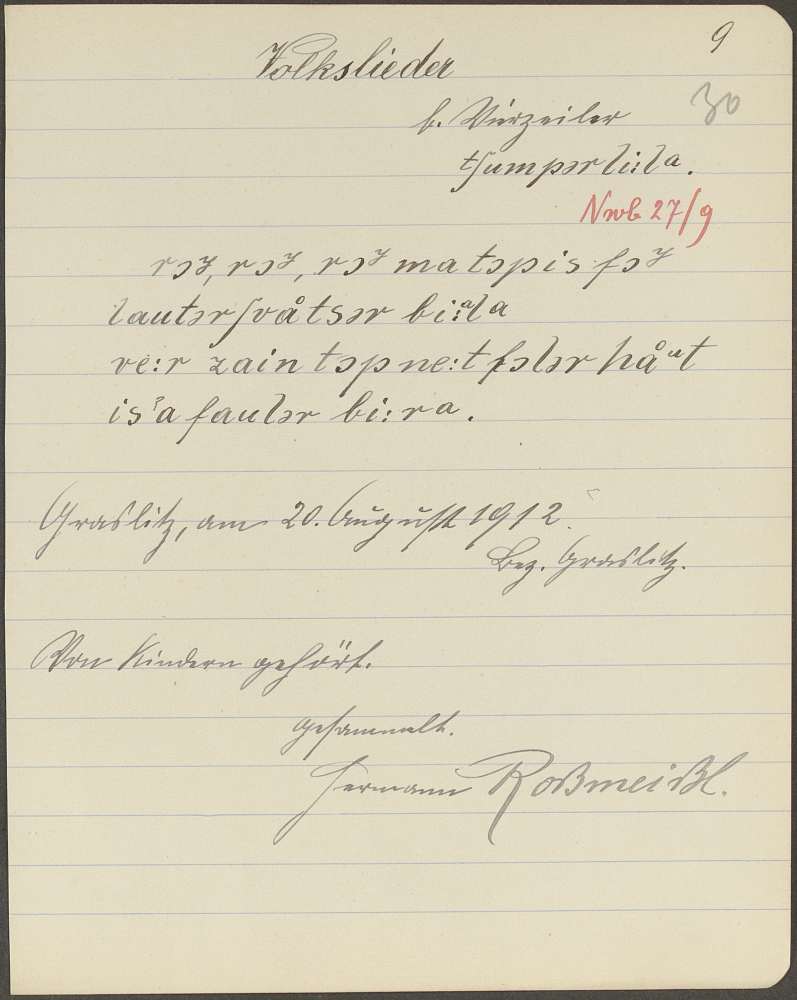 9
Volkslieder
30
b. Vierzeiler
tʃumpərli:la.
Nwb 27/9
rɔx, rɔx, rɔx ma tɔpis fɔx
lautər ʃvåtsər bi:ᵃla
ve:r zain tɔp ne:t fɔlər håᵘt
is ʾa faulər bi:ra.
Graslitz, am 20. August 1912.
Bez. Graslitz.
Von Kindern gehört.
gesammelt.
Hermann Roßmeißl.